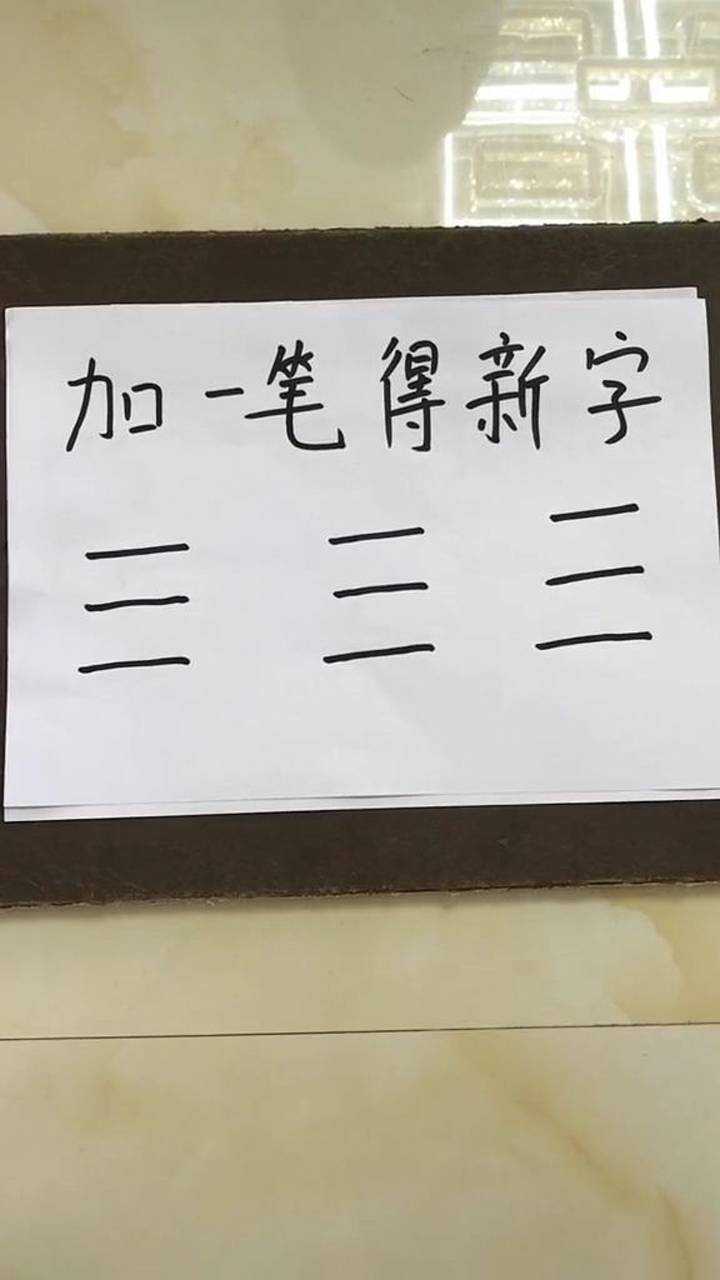 加一笔得新字
三 三 三